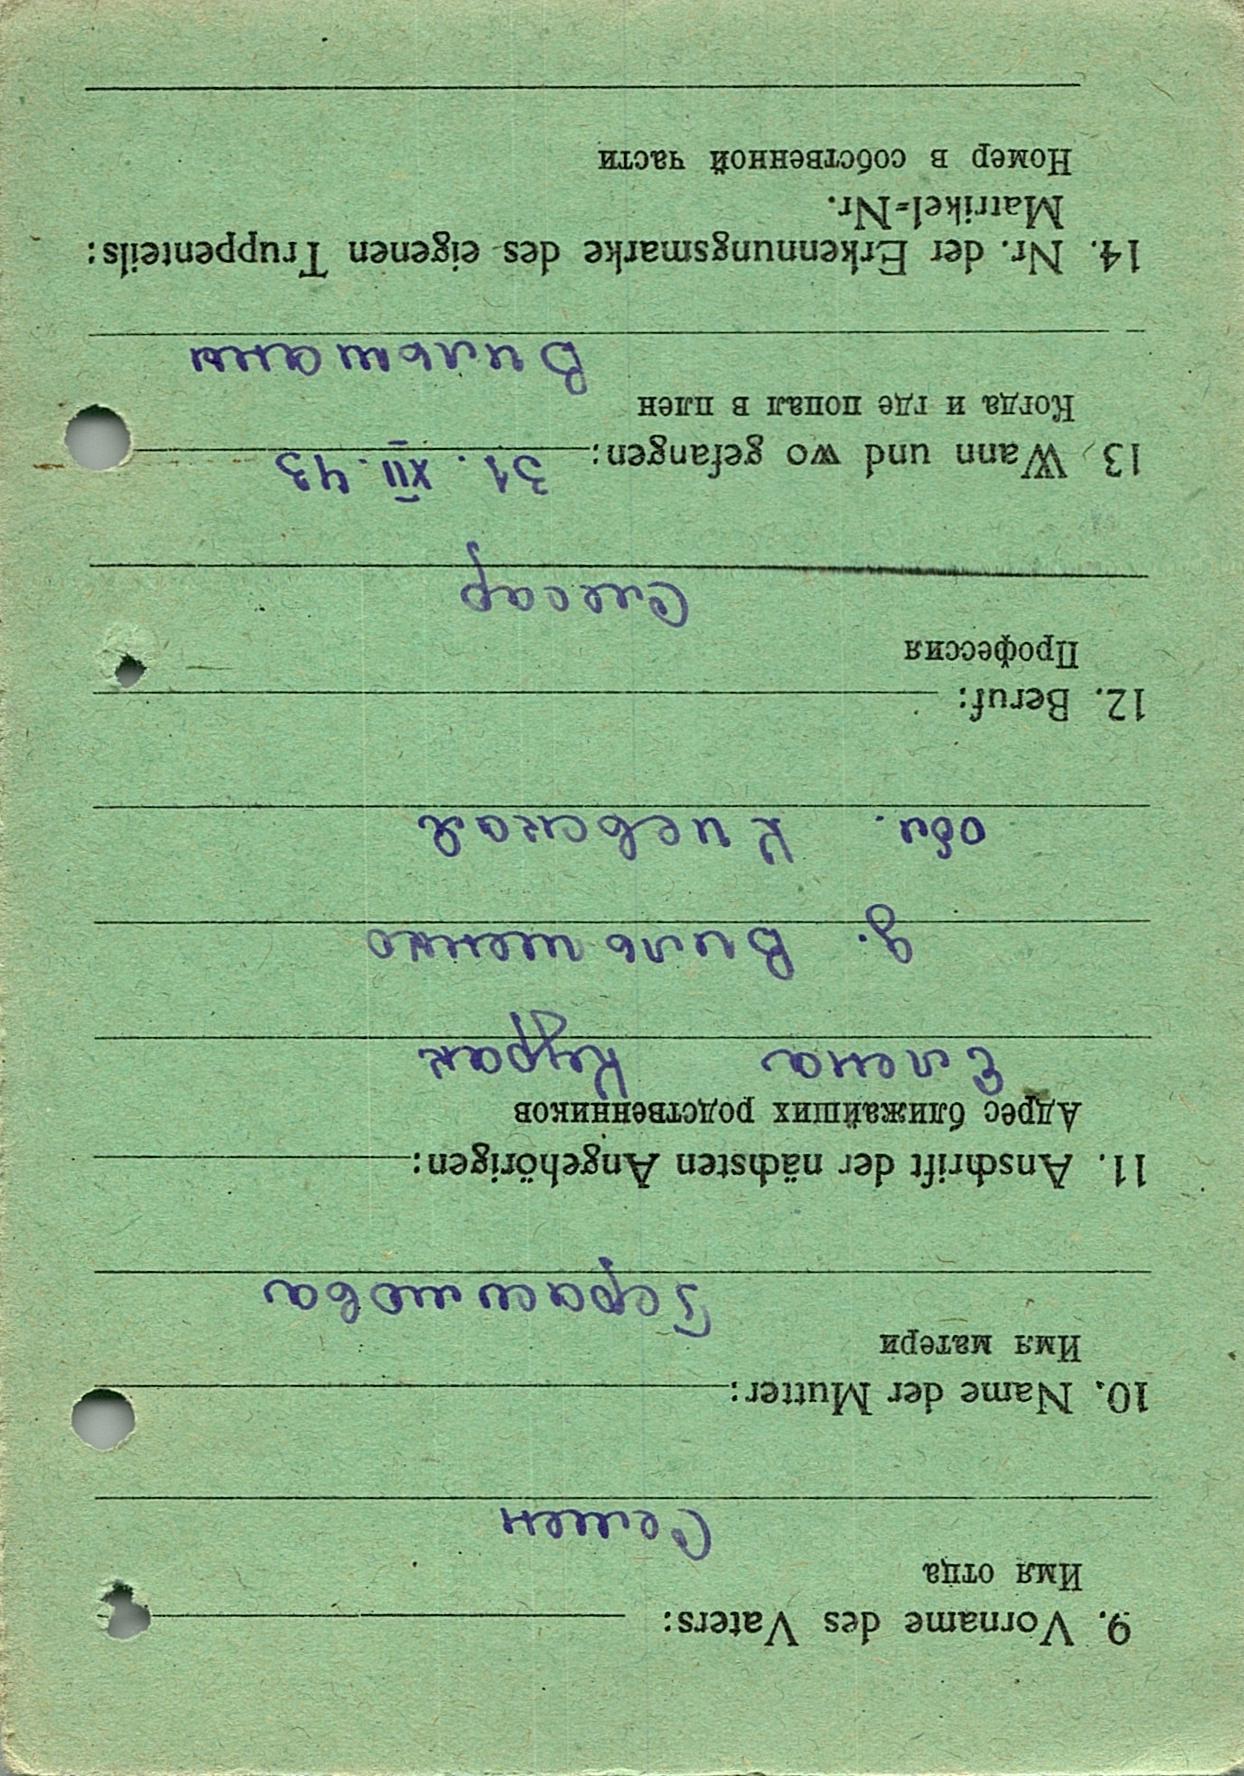 9. Vorname des Vaters:
Имя отца
Семен
10. Name der Mutter:
Имя матери
Герасимова
11. Anschrift der nächsten Angehörigen:
Адрес ближайших родственников
Елена Курах
д. Вильшенко
обл. Киевская
12. Beruf:
Профессия
Слесар
13 Wann und wo gefangen: 31. XII. 43
Когда и где попал в плен
Вильшаны
14. Nr. der Erkennungsmarke des eigenen Truppenteils:
Matrikel=Nr.
Номер в собственной части